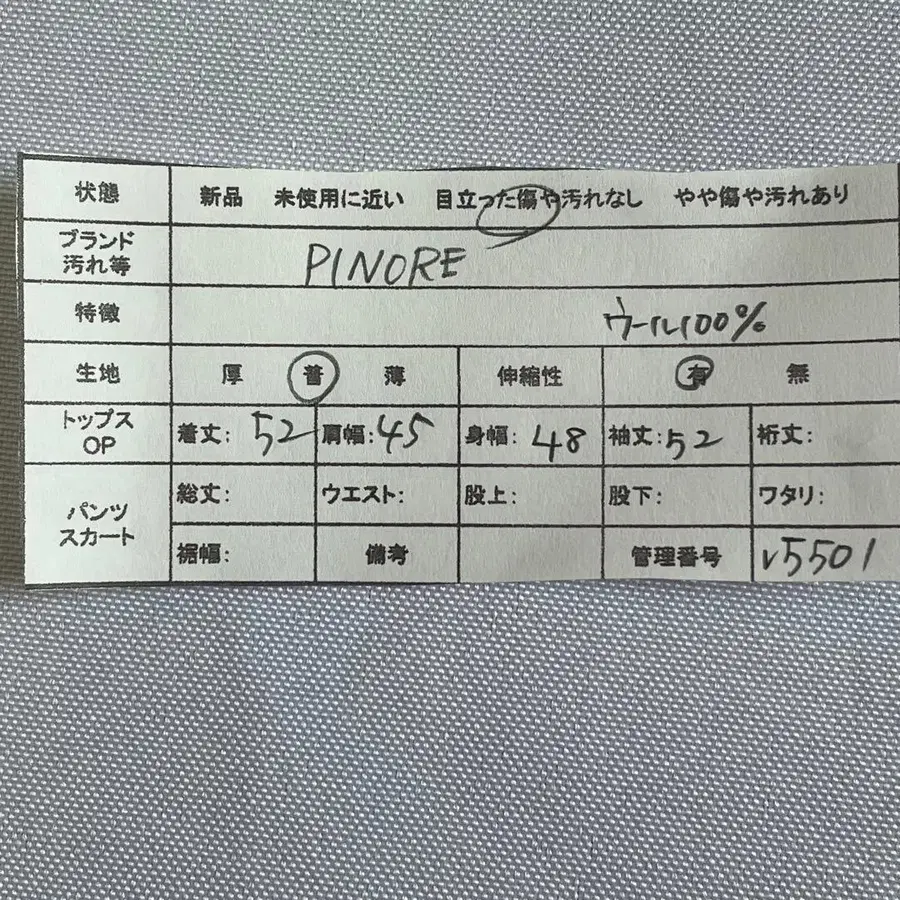 状態 新品 未使用に近い 目立った傷や汚れなし やや傷や汚れあり
ブランド
汚れ等 PINORE
特徴 ウール100%
生地 厚 普 薄 伸縮性 有 無
トップス
OP 着丈: 52 肩幅: 45 身幅: 48 袖丈: 52 裄丈:
パンツ
スカート 総丈: ウエスト: 股上: 股下: ワタリ:
裾幅: 備考 管理番号 v5501